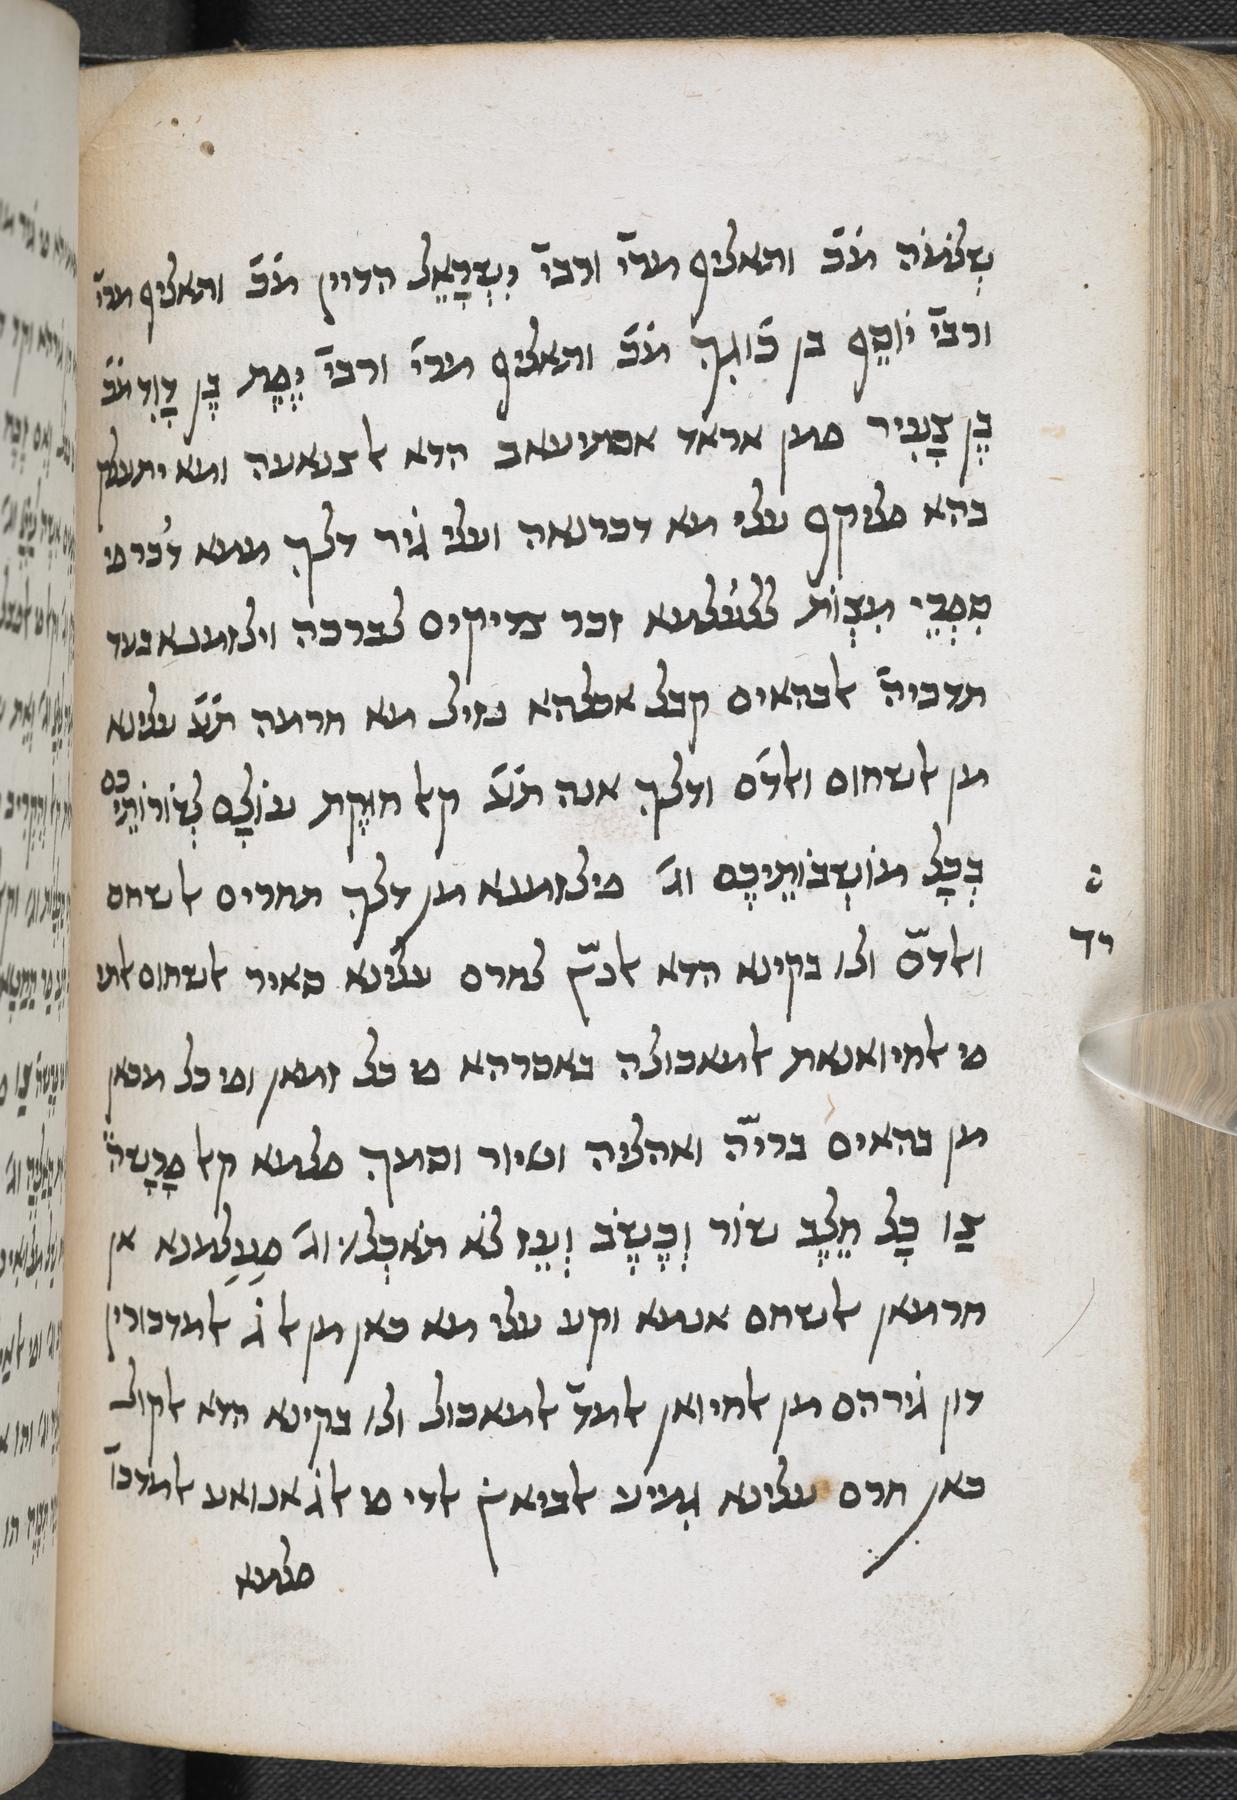 שְׁלֹמֹה נ̇ב̇ ותאליף מרי̄ ורבי̄ יִשְׂרָאֵל הדיין נ̇ב̇ ותאליף מרי̄
ורבי̄ יוֹסֵף בן כ̇וּגִךּ נ̇ב̇ ותאליף מרי̄ ורבי̄ יֶפֶת בֶן דָוִד נ̇ב̇
בֶן צָגִיר פמן אראד אסתיעאב הדא לצנאעה ומא יתעלק
בהא פליקף עלי מא דכרנאה ועלי ג̇יר דלךּ ממא ד̇כר פי
סִפְרֵי מִצְוֹת לעלמא זכר צדיקים לברכה וילזמנא בעד
תדכיה̈ לבהאים קבל אכלהא נזיל מא חרמה ת̇ע̇ עלינא
מן לשחום ולד̇ם ודלךּ אנה ת̇ע̇ קאל חוּקַת עוֹלָם לְדוֹרוֹתֵיכם
בְּכָל מוֹשְׁבוֹתֵיכֶם וג̇ פילזמנא מן דלך תחרים לשחם
ולד̄ם ולו בקינא הדא לנ̄ץ לחרם עלינא סאיר לשחום לתי
פי לחיואנאת למאכולה באסרהא פי כל זמאן ופי כל מכאן
מן בהאים בריה̈ ואהליה וטיור וסמךּ פלמא קאל פָרָשַׁה̈
צַו כָּל חֵלֶב שׁוֹר וְכֶשֶׂב וְעֵז לֹא תֹאכֵלוּ וג̇ פעלמנא אן
חרמאן לשחם אנמא וקע עלי מא כאן מן ל ג̇ למדכורין
דון ג̇ירהם מן לחיואן למד̄ למאכול ולו בקינא הדא לקול
כאן חרם עלינא גמיע לביאץ̇ לדי פי ל ג̇ אנואע למדכו̄
פלמא
יד